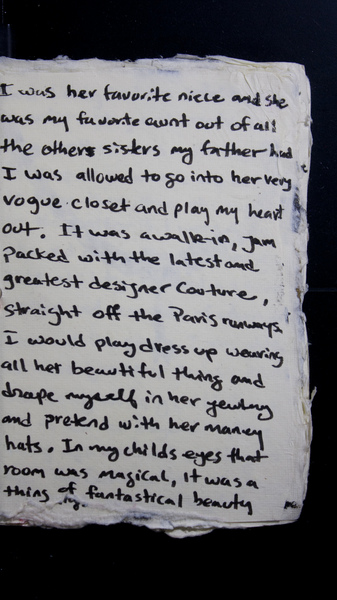 I was her favorite niece and she
was my favorite aunt out of all
the others sisters my father had
I was allowed to go into her very
vogue closet and play my heart
out. It was a walk-in, jam
packed with the latest and
greatest designer Couture,
straight off the Paris runways
I would play dress up wearing
all her beautiful thing and
drape myself in her jewlwy
and pretend with her maney
hats. In my childs eyes that
room was magical, it was a
thing of fantastical beauty